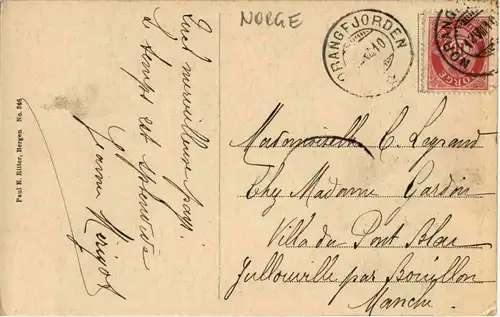 NORGE
Quel merveilleux pays!
le temps est splendide
Jeanne
Paul E. Ritter, Bergen No. 246
NORANGFJORDEN
10
NORANG
NORGE
Mademoiselle C. Legrand
Chez Madame Gardin
Villa du Pont Bleu
Jullouville par Bouillon
Manche.